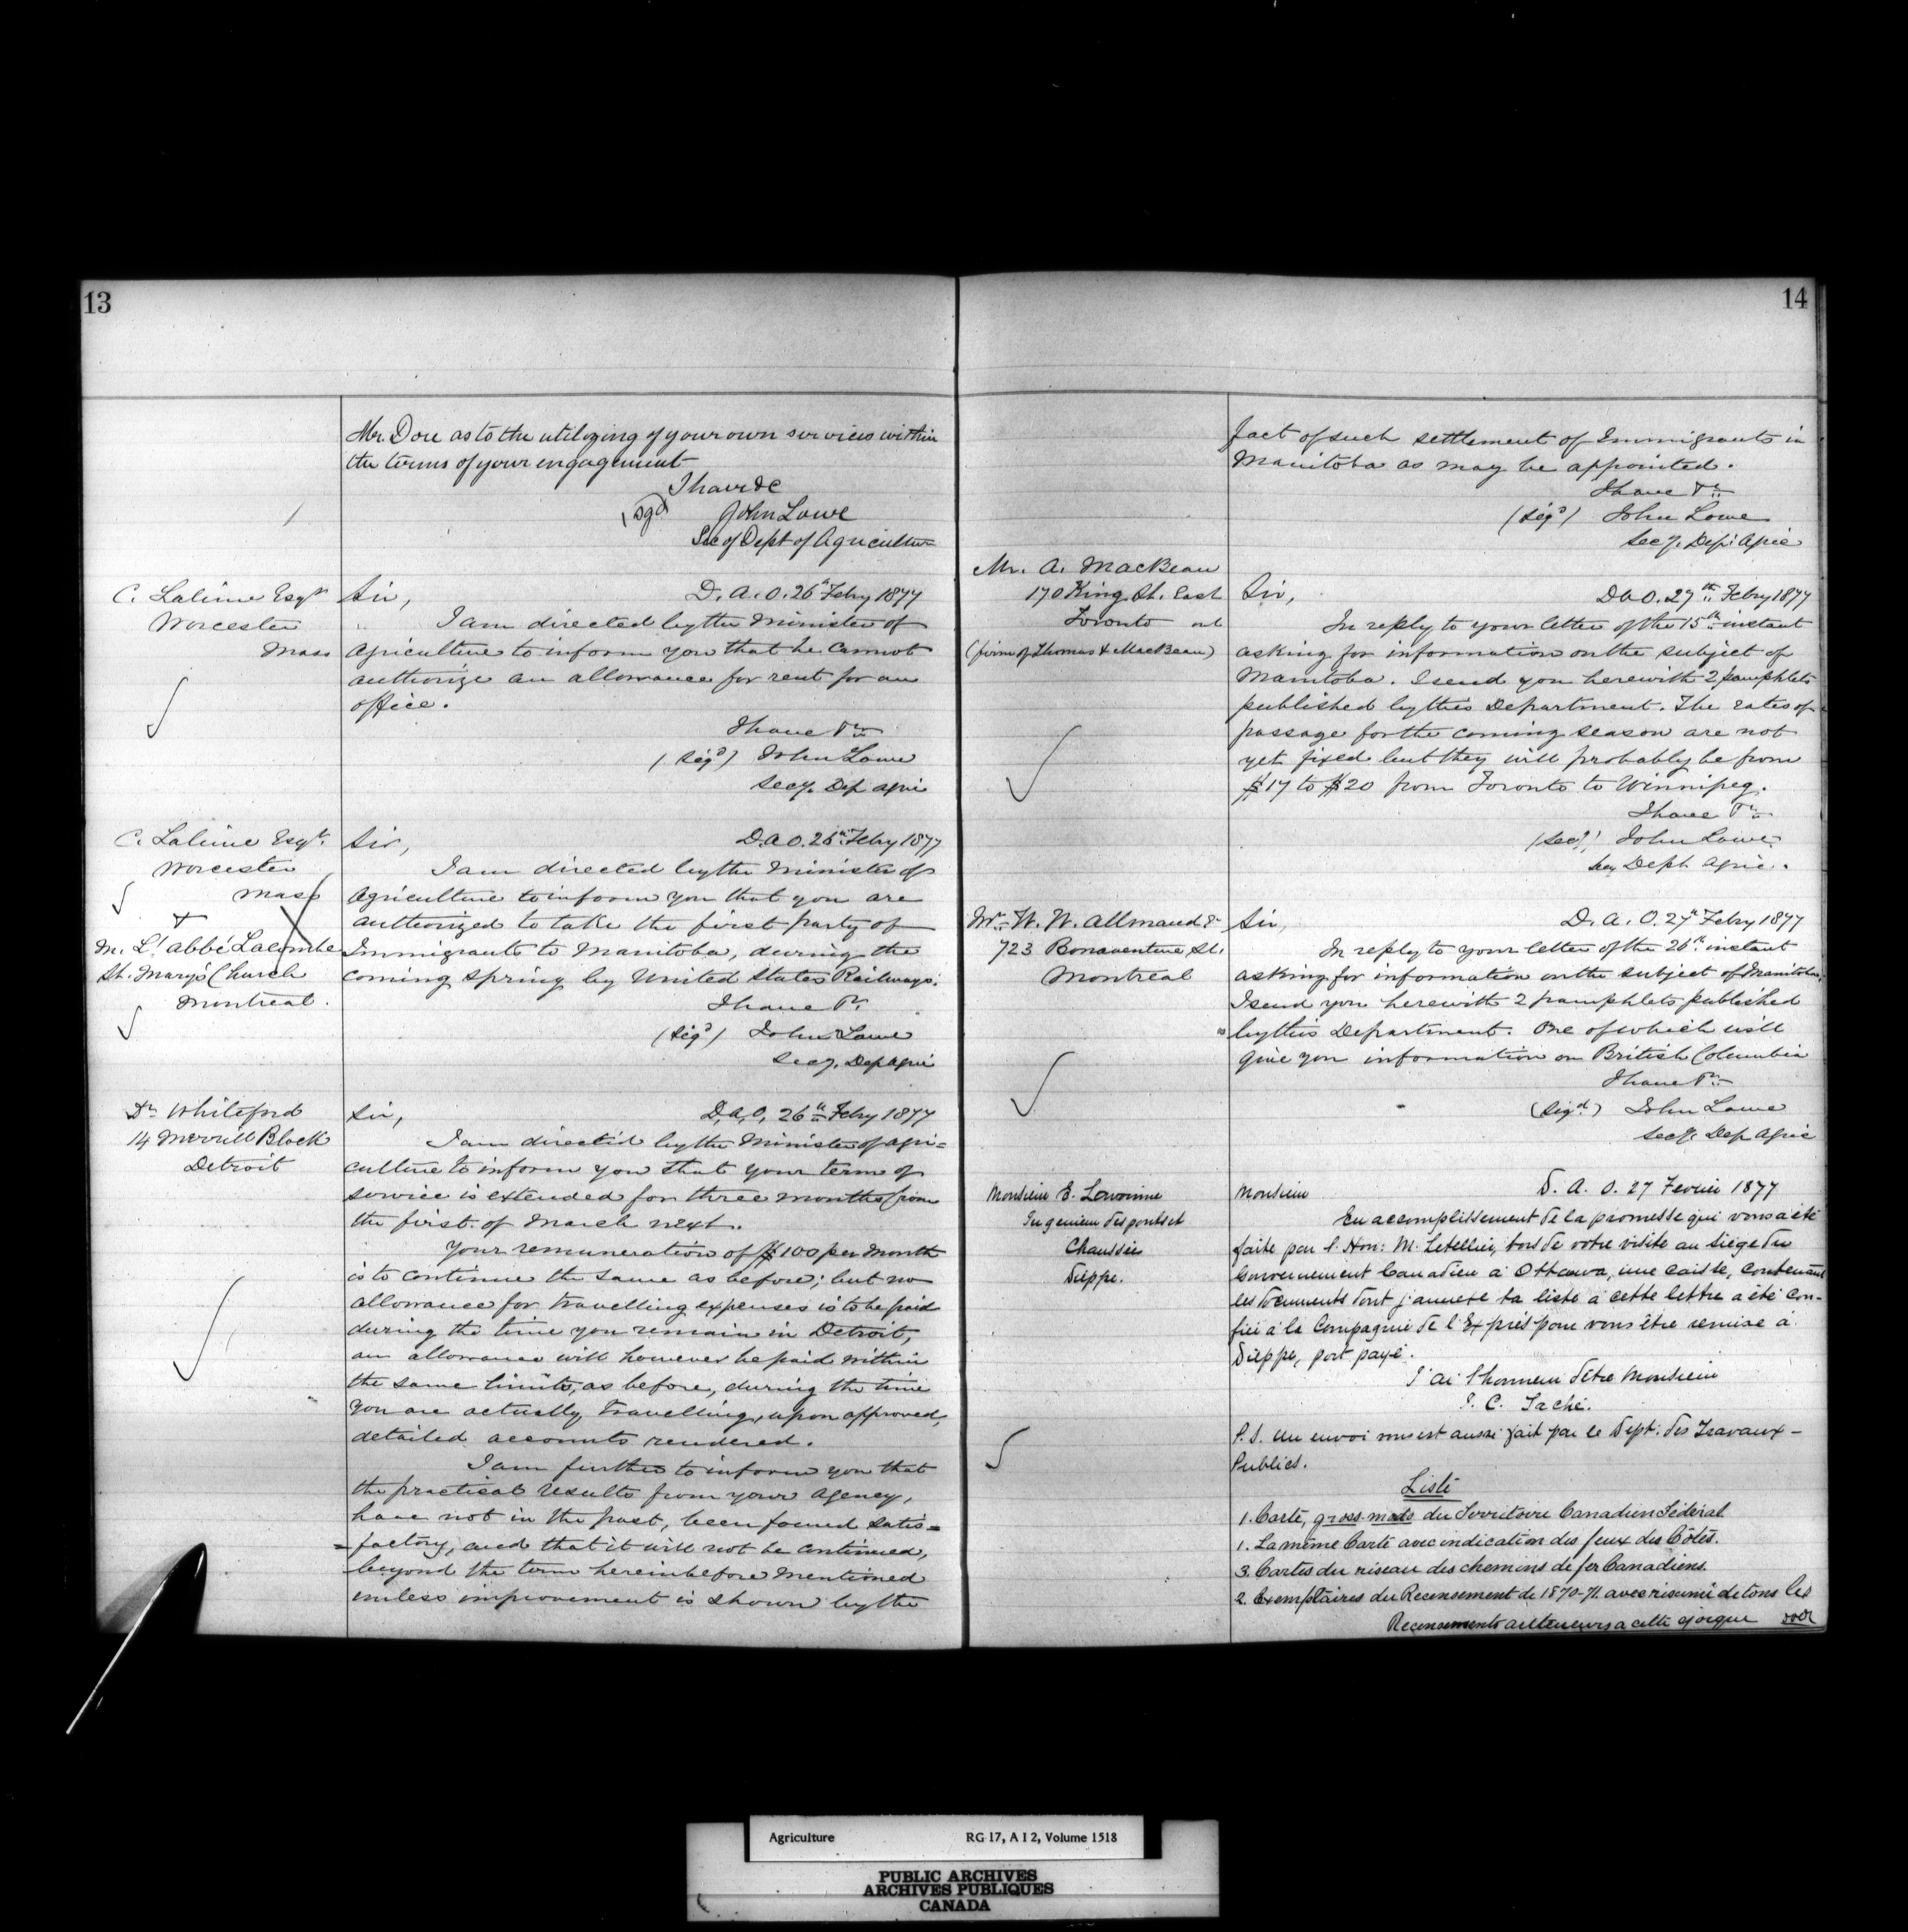 13
Mr. Dore as to the utilizing of your own services within
the terms of your engagement
I have &c
(sgd) John Lowe
Sec of Dept of Agriculture
C. Lalime Esqr
Worcester
Mass
Sir, D. A. O. 26th Febry 1877
I am directed by the Minister of
Agriculture to inform you that he cannot
authorize an allowance for rent for an
office.
I have &c
(Sigd) John Lowe
Secy. Dep Agric
C. Lalime Esqr.
Worcester
Mass
+
M. L'abbé Lacombe
St. Mary's Church
Montreal.
Sir, D. A. O. 26th Febry 1877
I am directed by the Minister of
Agriculture to inform you that you are
authorized to take the first party of
Immigrants to Manitoba, during the
coming spring by United States Railways.
I have &c.
(Sigd) John Lowe
Secy. Dep Agric
Dr Whiteford
14 Merrill Block
Detroit
Sir, D. A. O. 26th Febry 1877
I am directed by the Minister of Agri=
culture to inform you that your term of
service is extended for three months from
the first of March next.
Your remuneration of $100 per month
is to continue the same as before; but no
allowance for travelling expenses is to be paid
during the time you remain in Detroit,
an allowance will however be paid within
the same limits, as before, during the time
you are actually travelling, upon approved,
detailed accounts rendered.
I am further to inform you that
the practical results from your agency,
have not in the past, been found satis=
=factory, and that it will not be continued,
beyond the term hereinbefore mentioned
unless improvement is shown by the
14
fact of such settlement of Immigrants in
Manitoba as may be appointed.
I have &c
(Sigd) John Lowe
Secy. Dep. Agric
Mr. A. MacBean
170 King St. East
Toronto Ont
(firm of Thomas & MacBean)
Sir, D A O. 27th Febry 1877
In reply to your letter of the 15th instant
asking for information on the subject of
Manitoba. I send you herewith 2 pamphlets
published by this Department. The rates of
passage for the coming season are not
yet fixed but they will probably be from
$17 to $20 from Toronto to Winnipeg.
I have &c
John Lowe
Secy Dept Agric.
Mr. W. W. Allmand
723 Bonaventure St.
Montreal
Sir, D. A. O. 27th Febry 1877
In reply to your letter of the 26th instant
asking for information on the subject of Manitoba.
I send you herewith 2 pamphlets published
by this Department. One of which will
give you information on British Columbia
I have &c
(Sigd) John Lowe
Secy. Dep Agric
Monsieur E.
Ingenieur des ponts et
Chaussées
Dieppe.
Monsieur D. A. O. 27 Fevrier 1877
En accomplissement de la promesse qui vous a été
faite par l'Hon: M. Letellier, lors de votre visite au siège du
Gouvernement Canadien à Ottawa, une caisse, contenant
les documents dont j'annexe la liste à cette lettre a été con-
fiée à la Compagnie de l'Exprès pour vous être remise à
Dieppe, port payé.
J'ai l'honneur d'être Monsieur
J. C. Taché.
P.S. Un envoi vous est aussi fait par le Dépt: des Travaux-
Publics.
Liste
1. Carte, gross-modo du Territoire Canadien Fédéral
1. La même Carte avec indication des feux des Côtes.
3. Cartes du réseau des chemins de fer Canadiens.
2. Exemplaires du Recensement de 1870-71. avec résumé de tous les
Recensements antérieurs a cette époque over
Agriculture RG 17, A I 2, Volume 1518
PUBLIC ARCHIVES
ARCHIVES PUBLIQUES
CANADA